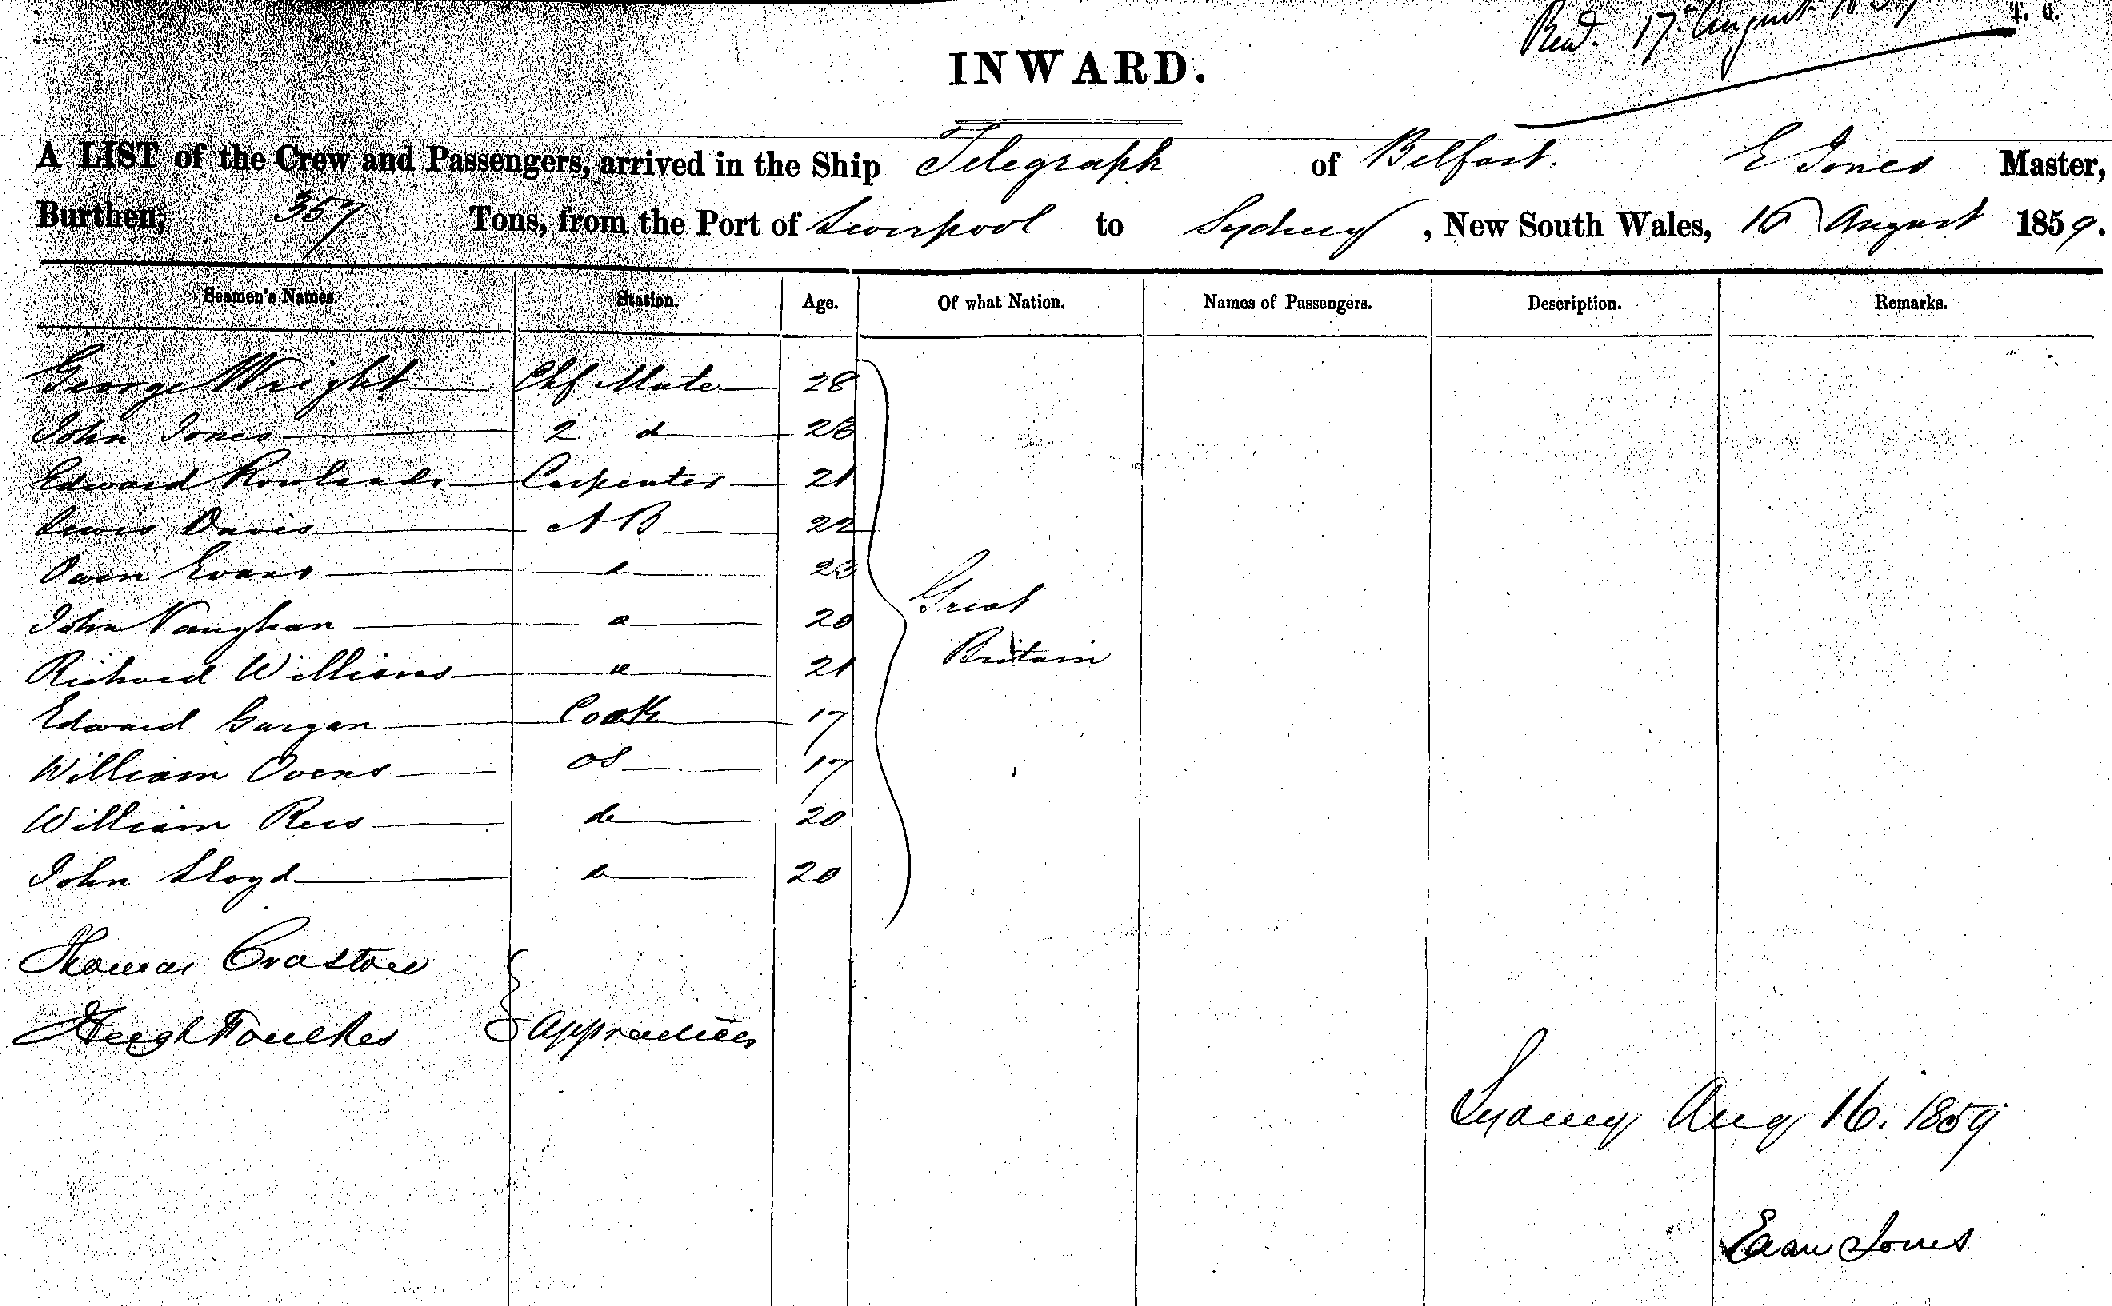 Recd. 17th August 1859
INWARD.
A LIST of the Crew and Passengers, arrived in the Ship Telegraph of Belfast. E Jones Master,
Burthen, 357 Tons, from the Port of Liverpool to Sydney, New South Wales, 16 August 1859.
Seamen's Names Station. Age. Of what Nation. Names of Passengers. Description. Remarks.
George Wright Chf Mate 28
John Jones 2 d 26
Edward Rowlands Carpenter 21
Lewis Davis AB 22
Owen Evans " 23
Great
John Vaughan " 20
Britain
Richard Williams " 21
Edward Gargan Cook 17
William Owens OS 17
William Rees do 20
John Lloyd " 20
Thomas
Hugh Foulkes Apprentices
Sydney Aug 16. 1859
Evan Jones